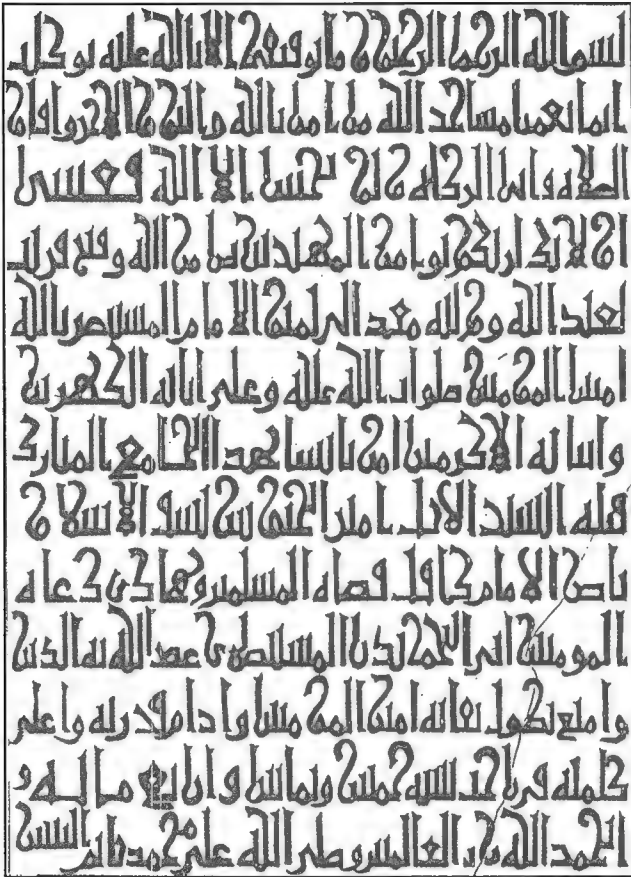 بسم الله الرحمن الرحيم وما توفيقي الا بالله عليه توكلت
انما يعمر مساجد الله من امن بالله واليوم الاخر واقام
الصلاه واتى الزكاه ولم يخش الا الله فعسى
اولئك ان يكونوا من المهتدين نصر من الله وفتح قريب
لعبد الله ووليه معد ابي تميم الامام المستنصر بالله
امير المومنين صلوات الله عليه وعلى ابائه الطاهرين
وابنائه الاكرمين امر بانشا هذا الجامع المبارك
فتاه السيد الاجل امير الجيوش سيف الاسلام
ناصر الامام كافل قضاه المسلمين وهادي دعاه
المومنين ابو النجم بدر المستنصري عضد الله به الدين
وامتع بطول بقائه امير المومنين وادام قدرته واعلى
كلمته في رجب سنه خمس وثمانين واربع مايه و
الحمد لله رب العالمين وصلى الله على محمد خاتم النبيين